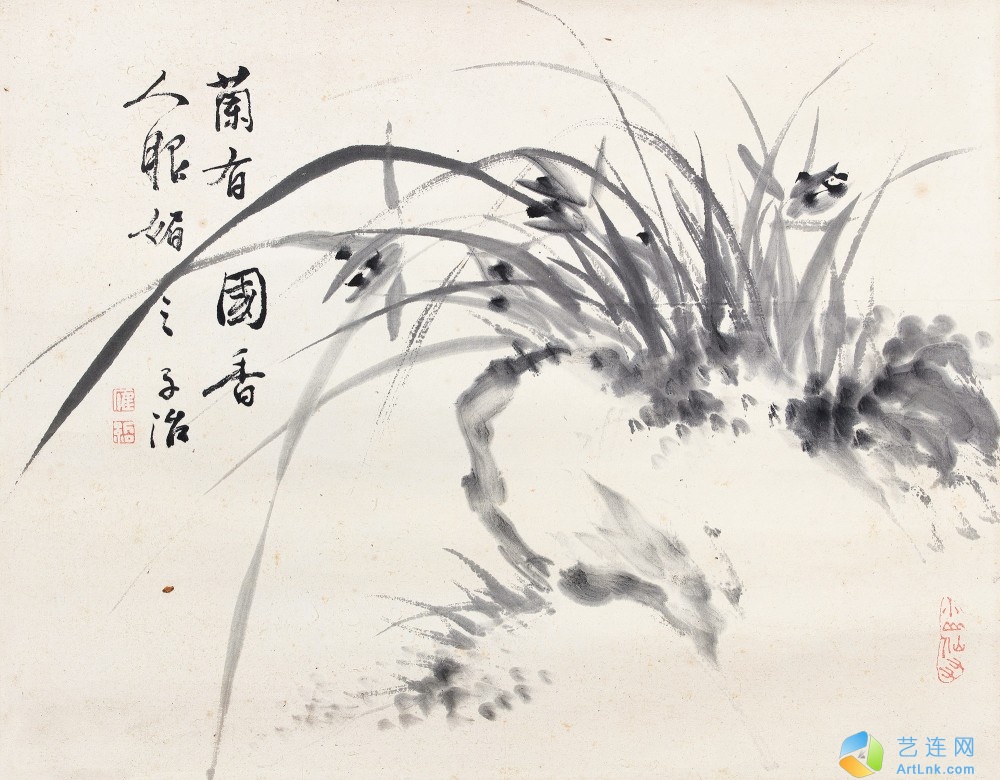 蘭有國香
人服媚之 子治
艺连网
ArtLnk.com